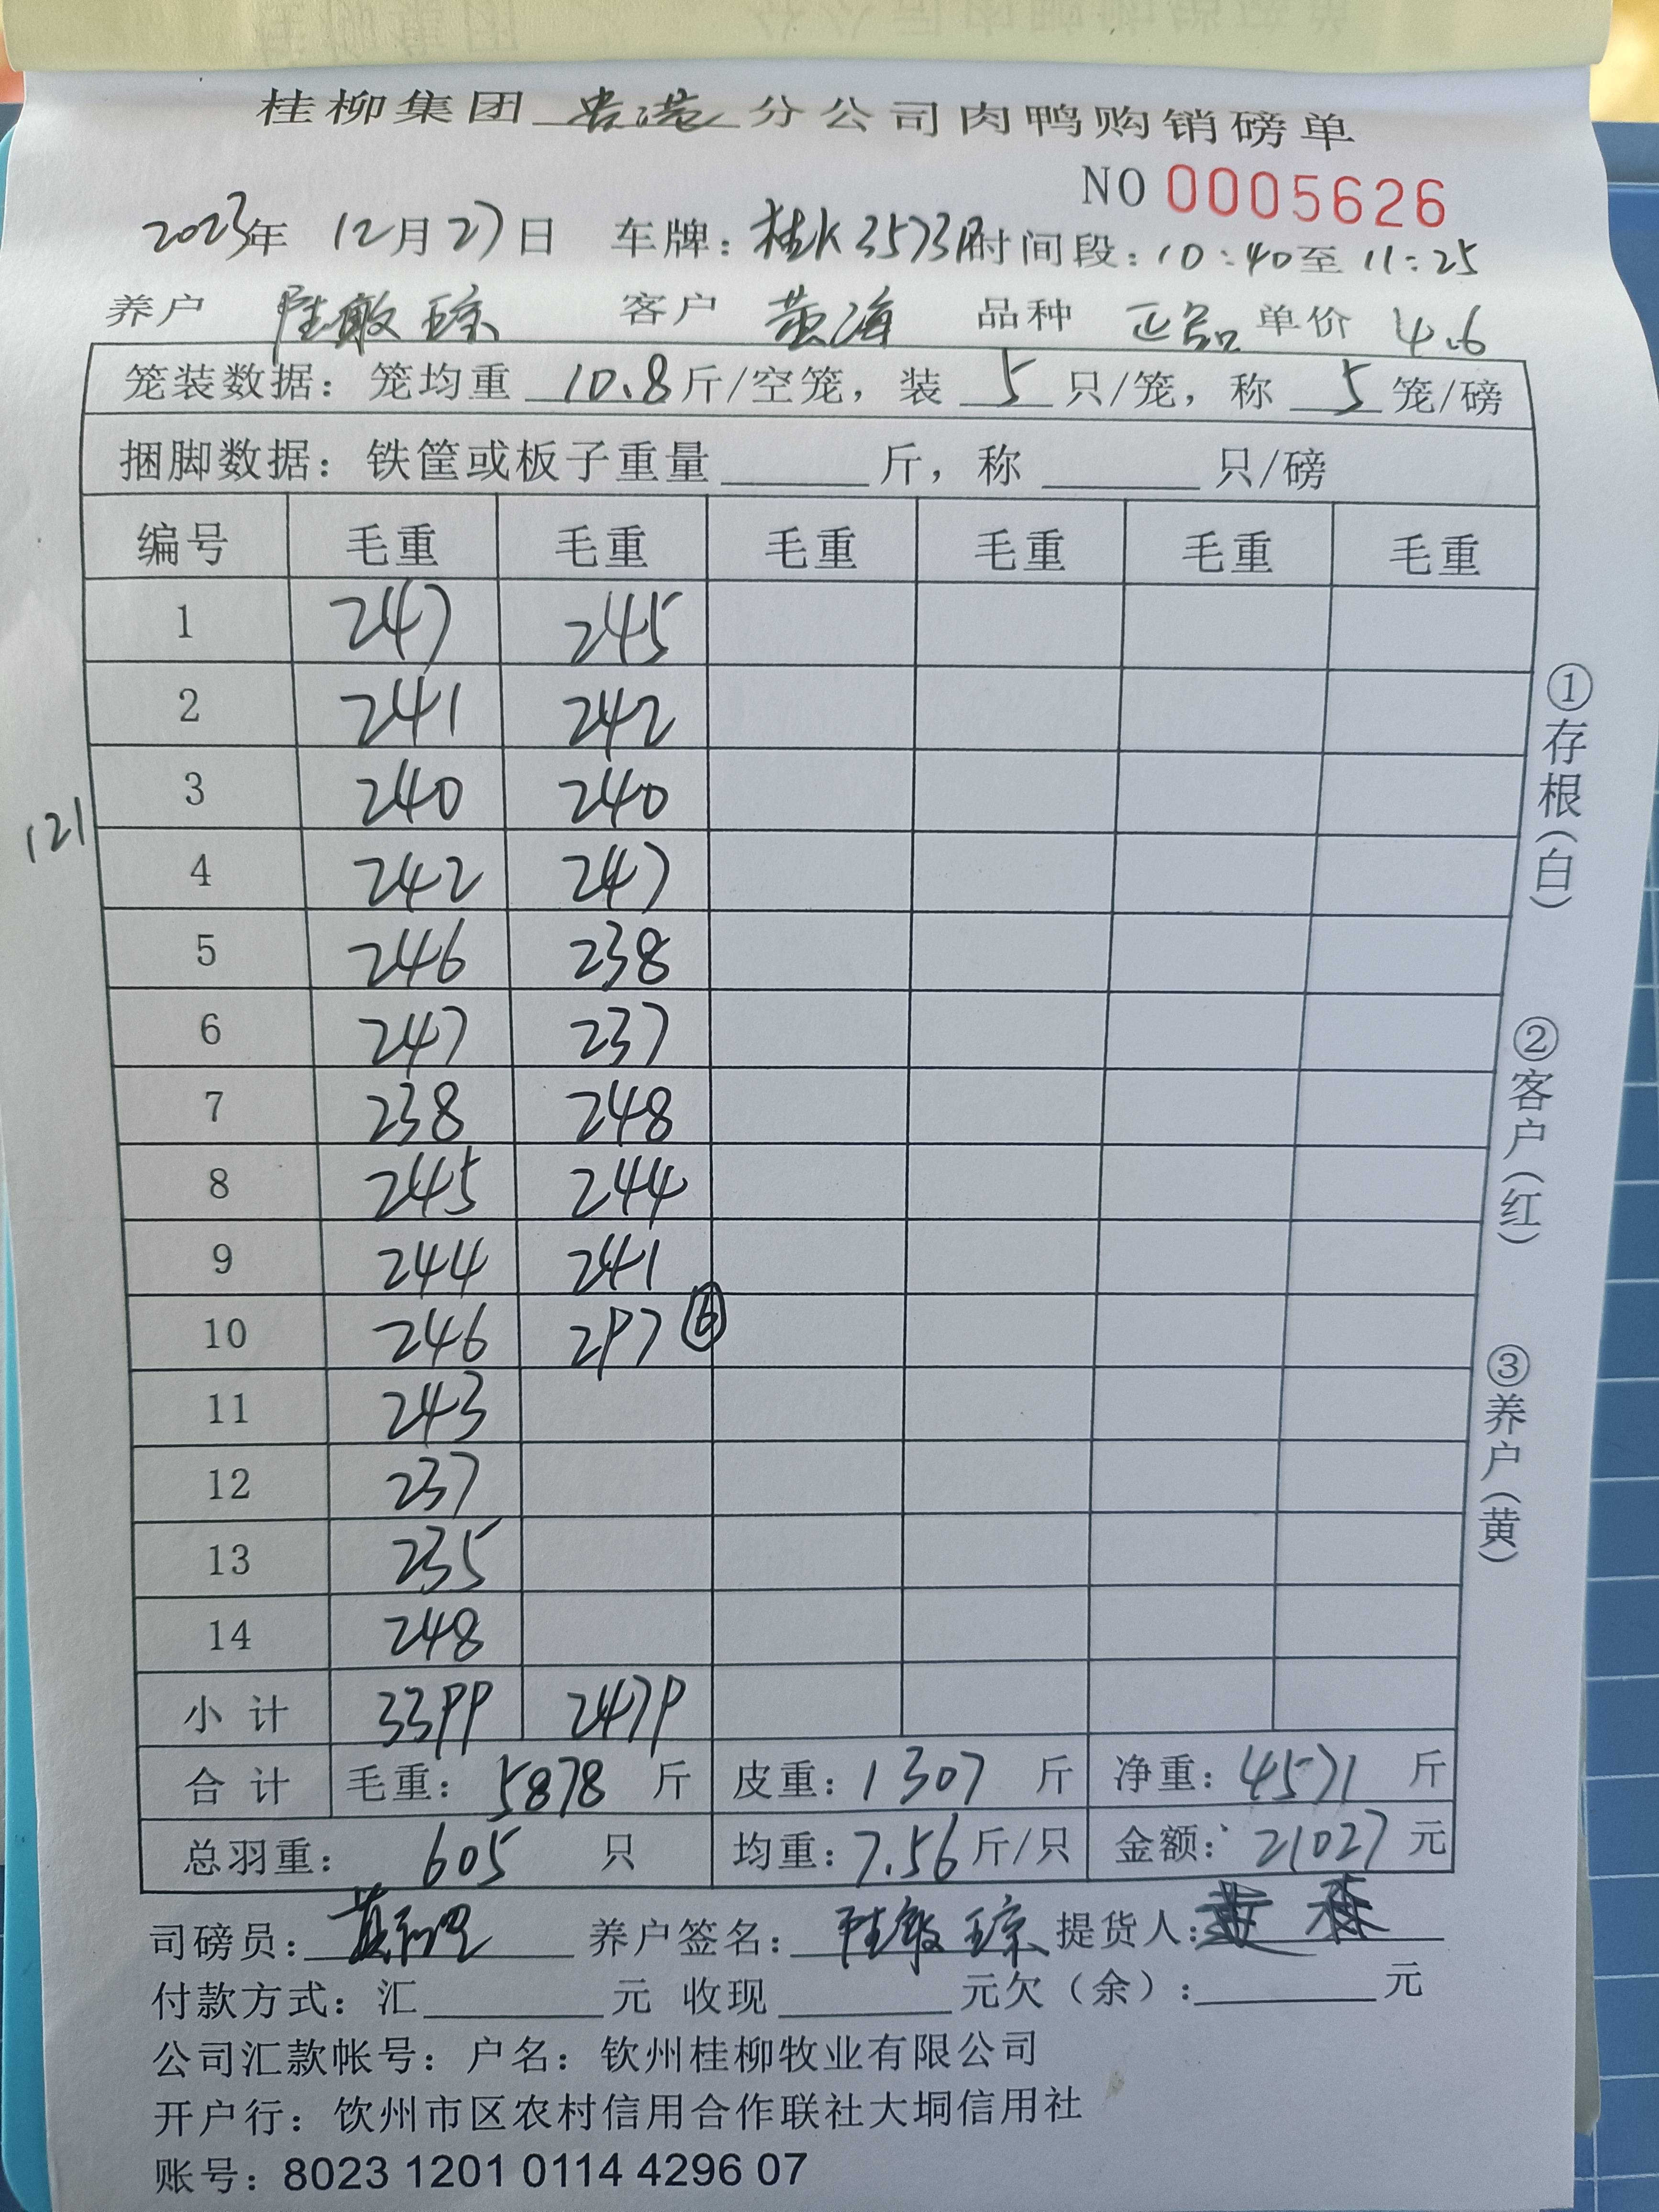 桂柳集团 贵港 分公司肉鸭购销磅单
NO 0005626
2023年 12月27日 车牌：桂K3573A 时间段：10:40至11:25
养户 陆敏琼 客户 黄海 品种 正品 单价 4.6
笼装数据：笼均重 10.8 斤/空笼，装 5 只/笼，称 5 笼/磅
捆脚数据：铁筐或板子重量 斤，称 只/磅
编号 毛重 毛重 毛重 毛重 毛重 毛重
1 247 245
2 241 242
3 240 240
121
4 242 247
5 246 238
6 247 237
7 238 248
8 245 244
9 244 241
10 246 297 ⑥
11 243
12 237
13 235
14 248
小计 3399 2479
合计 毛重：5878 斤 皮重：1307 斤 净重：4571 斤
总羽重： 605 只 均重：7.56 斤/只 金额：21027 元
司磅员： 养户签名：陆敏琼 提货人：
付款方式：汇 元 收现 元欠（余）： 元
公司汇款帐号：户名：钦州桂柳牧业有限公司
开户行：钦州市区农村信用合作联社大垌信用社
账号：8023 1201 0114 4296 07
①存根（白）
②客户（红）
③养户（黄）